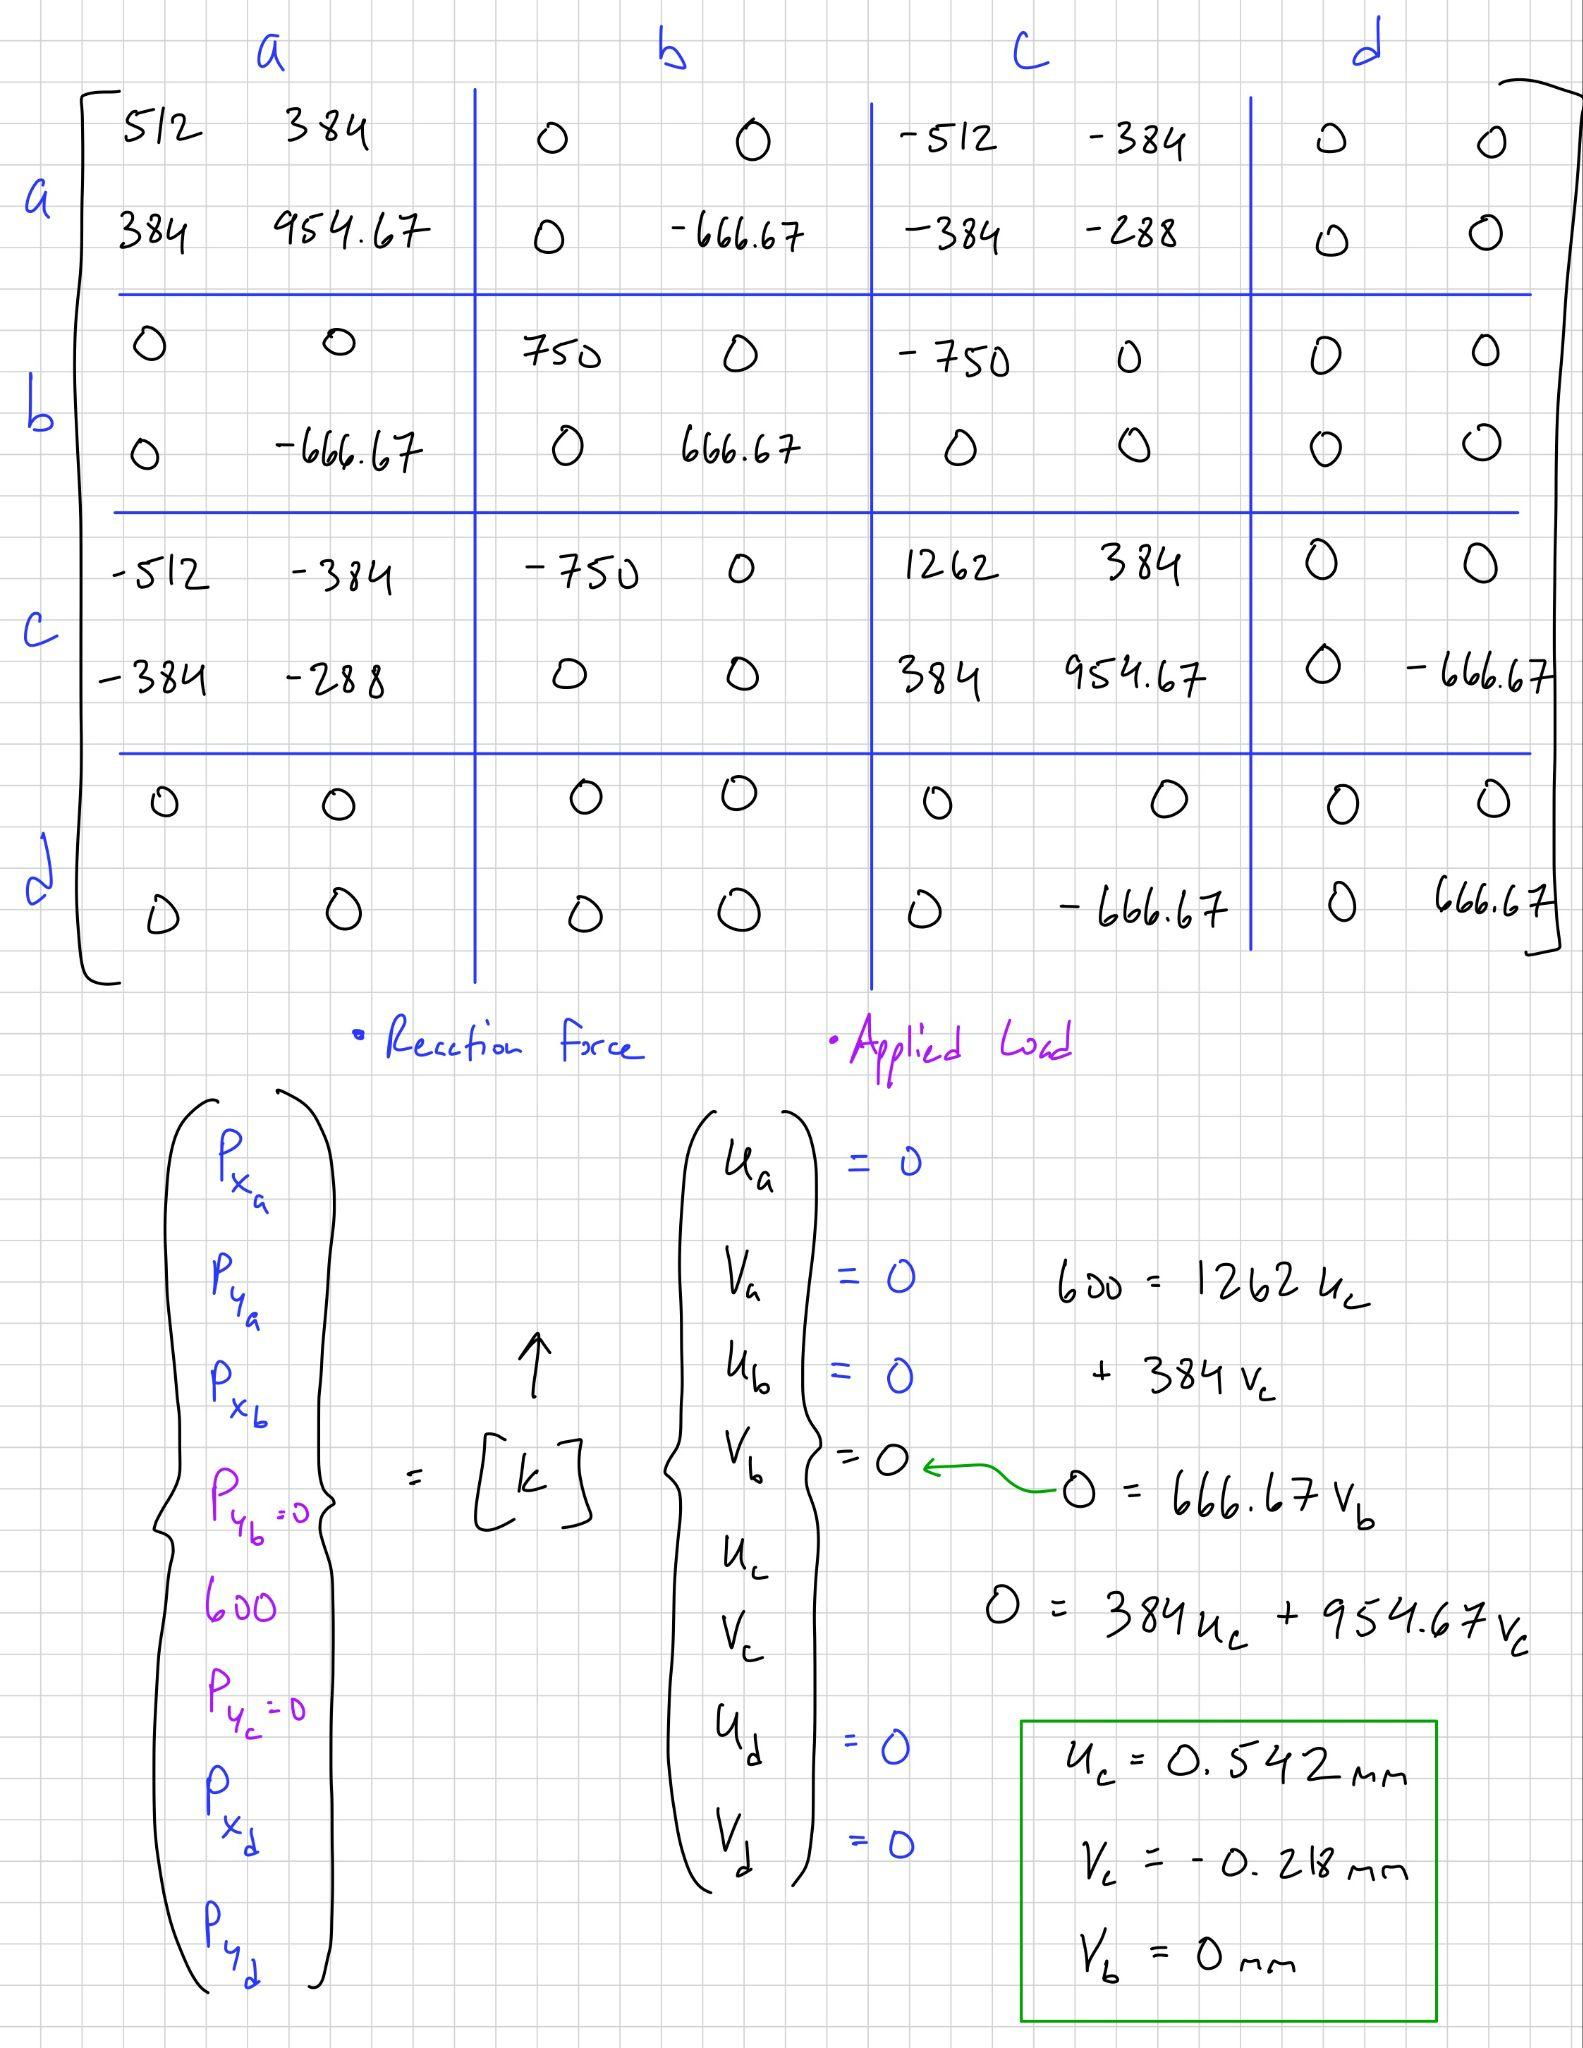 a b c d
512 384 0 0 -512 -384 0 0
a
384 954.67 0 -666.67 -384 -288 0 0
0 0 750 0 -750 0 0 0
b
0 -666.67 0 666.67 0 0 0 0
-512 -384 -750 0 1262 384 0 0
c
-384 -288 0 0 384 954.67 0 -666.67
0 0 0 0 0 0 0 0
d
0 0 0 0 0 -666.67 0 666.67
• Reaction Force • Applied Load
P_x_a
P_y_a
P_x_b
P_y_b = 0
600
P_y_c = 0
P_x_d
P_y_d
= [k]
↑
u_a = 0
v_a = 0
u_b = 0
v_b = 0
u_c
v_c
u_d = 0
v_d = 0
600 = 1262 u_c
+ 384 v_c
0 = 666.67 v_b
0 = 384 u_c + 954.67 v_c
u_c = 0.542 mm
v_c = -0.218 mm
v_b = 0 mm